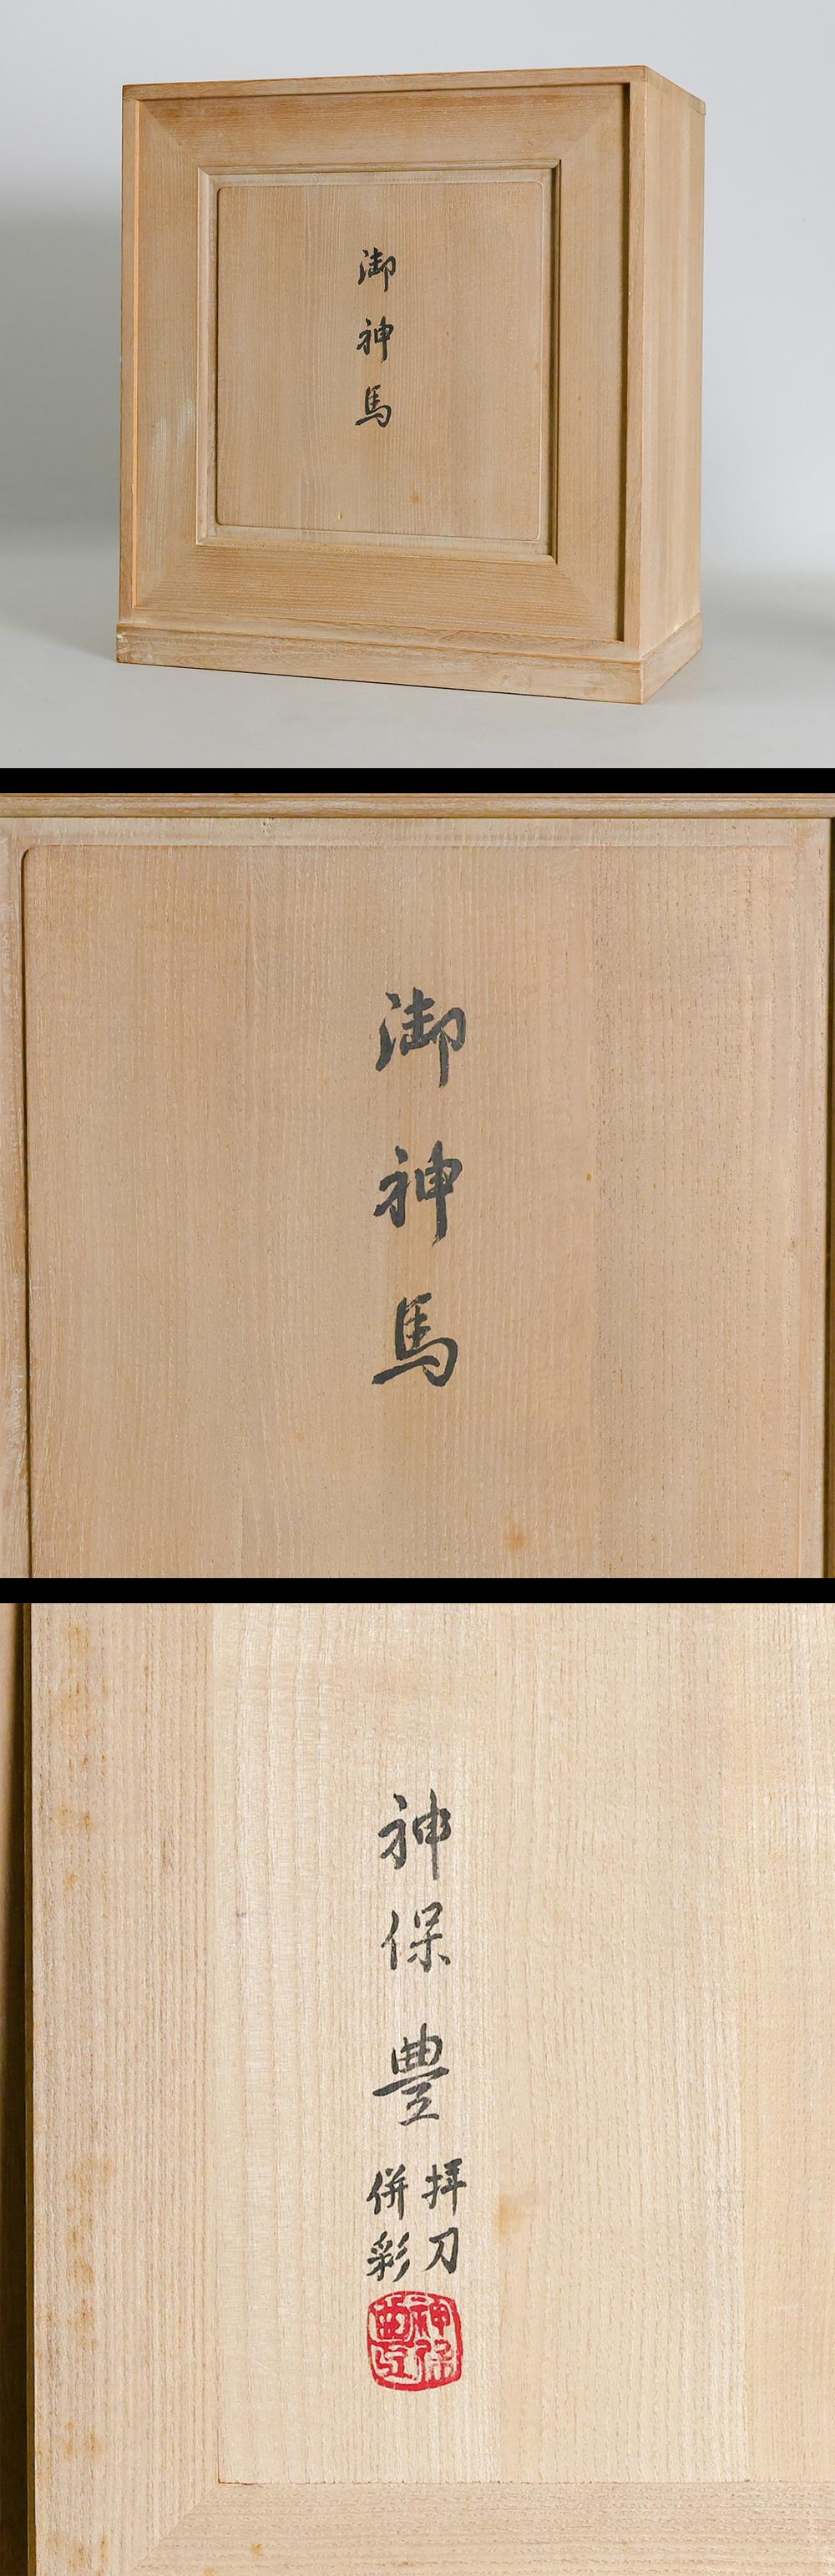 御神馬
御神馬
神保豊
拝刀
併彩
神保
豊